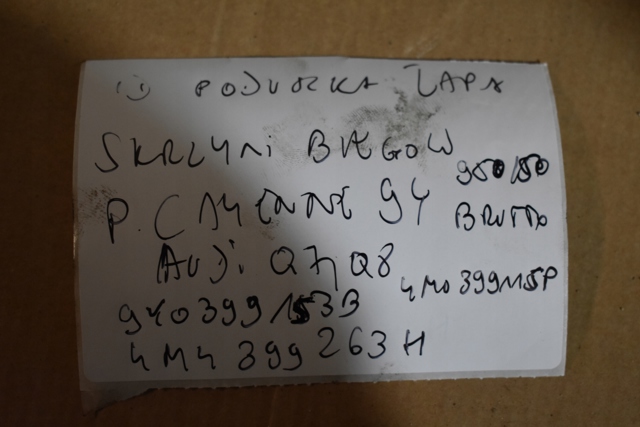 1) PODUSZKA ŁAPA
SKRZYNI BIEGÓW
950150
P. CAYENNE 9Y BRUTTO
AUDI Q7, Q8
4M0399115P
9Y0399153B
4M4399263H